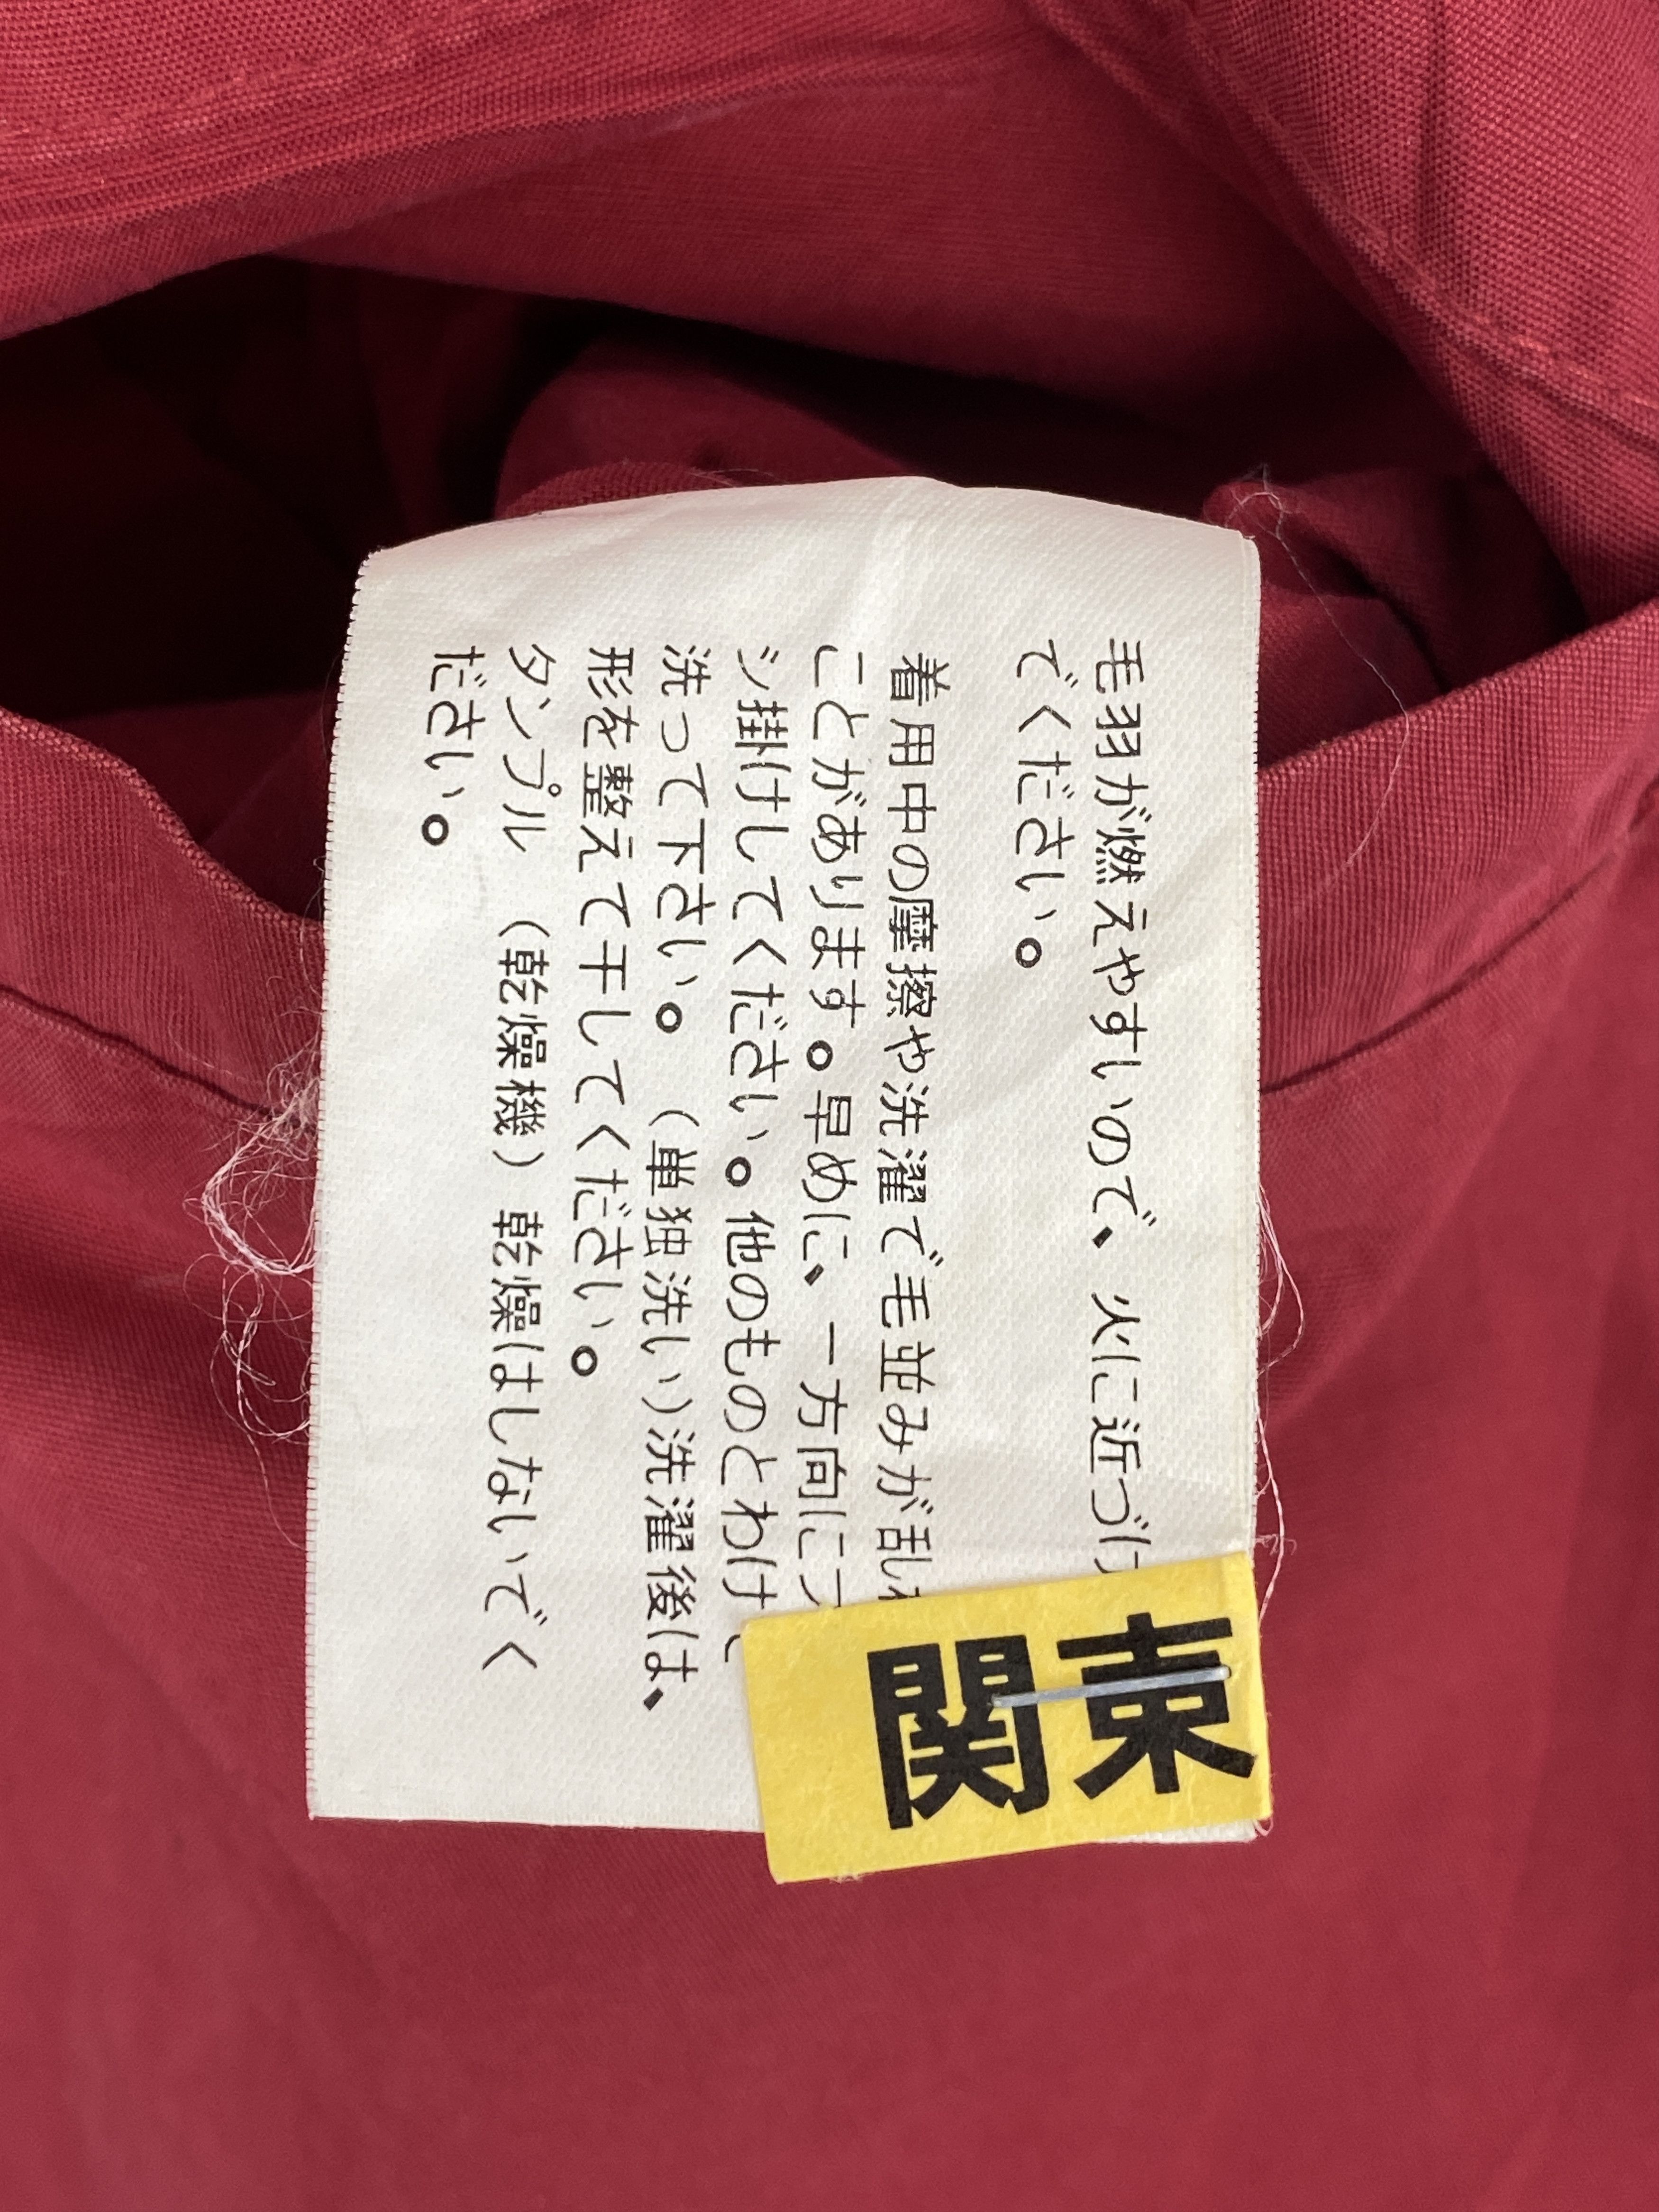 毛羽が燃えやすいので、火に近づけ
でください。
着用中の摩擦や洗濯で毛並みが乱れ
ことがあります。早めに、一方向にブ
シ掛けしてください。他のものとわけて
洗って下さい。(単独洗い)洗濯後は、
形を整えて干してください。
タンブル (乾燥機) 乾燥はしないでく
ださい。
関東